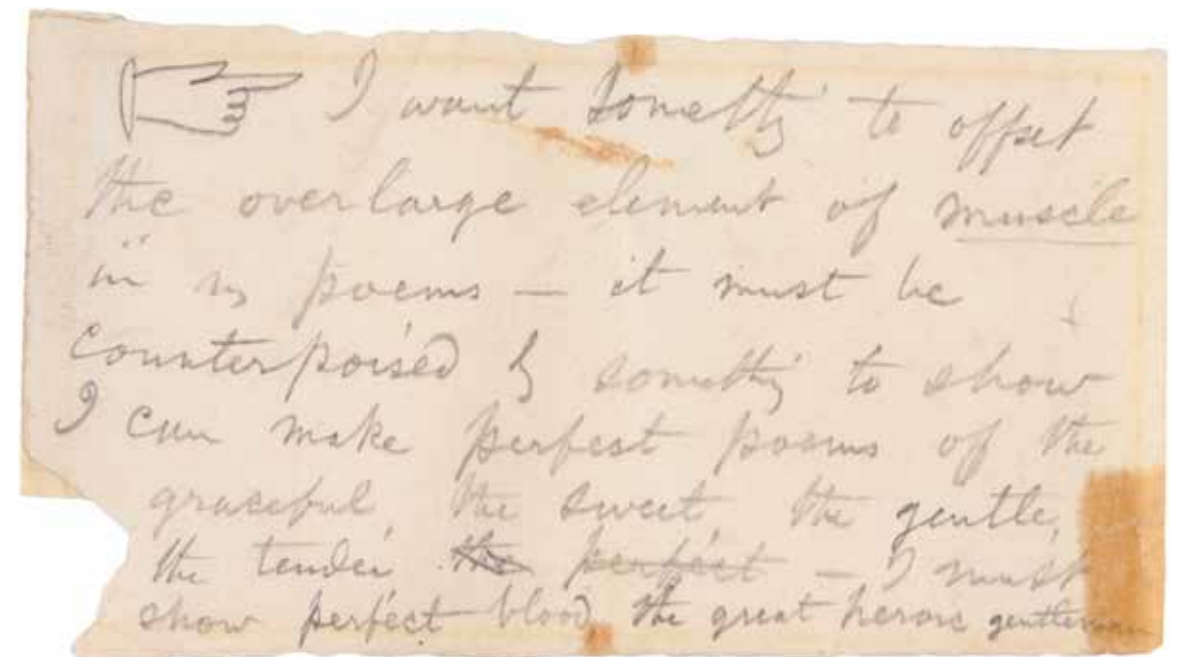 I want something to offset
the overlarge element of muscle
in my poems — it must be
counterpoised by something to show
I can make perfect poems of the
graceful, the sweet, the gentle,
the tender the perfect — I must
show perfect blood, the great heroic gentleman